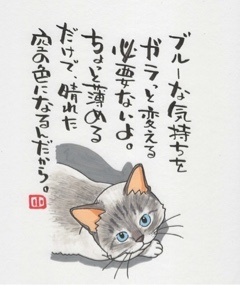 ブルーな気持ちを
ガラっと変える
必要ないよ。
ちょっと薄める
だけで、晴れた
空の色になるんだから。